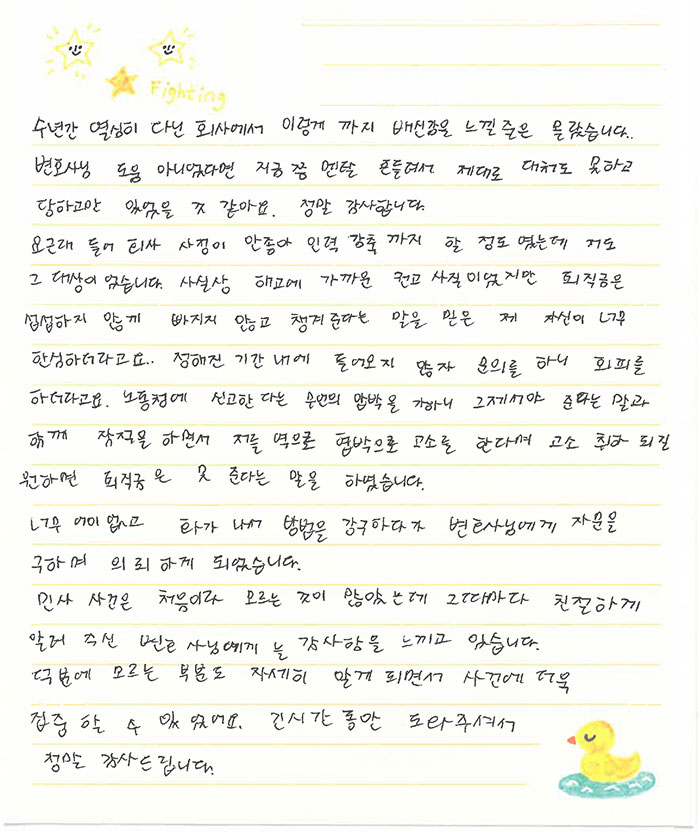 Fighting
수년간 열심히 다닌 회사에서 이렇게 까지 배신감을 느낄줄은 몰랐습니다..
변호사님 도움 아니었다면 지금쯤 멘탈 흔들려서 제대로 대처도 못하고
당하고만 있었을 것 같아요. 정말 감사합니다.
요근래 들어 회사 사정이 안좋아 인력 감축 까지 할 정도 였는데 저도
그 대상이 었습니다. 사실상 해고에 가까운 권고 사직이었지만 퇴직금은
섭섭하지 않게 빠지지 않고 챙겨준다는 말을 믿은 제 자신이 너무
한심하더라고요.. 정해진 기간 내에 들어오지 않자 문의를 하니 회피를
하더라고요. 노동청에 신고한 다는 압박을 가하니 그제서야 준다는 말과
함께 잠적을 하면서 저를 역으로 협박으로 고소를 한다며 고소 취하 되길
원하면 퇴직금은 못 준다는 말을 하였습니다.
너무 어이 없고 화가 나서 방법을 강구하다가 변호사님에게 자문을
구하며 의뢰 하게 되었습니다.
민사 사건은 처음이라 모르는 것이 많았는데 그때마다 친절하게
알려 주신 변호사님에게 늘 감사함을 느끼고 있습니다.
덕분에 모르는 부분도 자세히 알게 되면서 사건에 더욱
집중 할 수 있었어요. 긴시간 동안 도와주셔서
정말 감사드립니다.